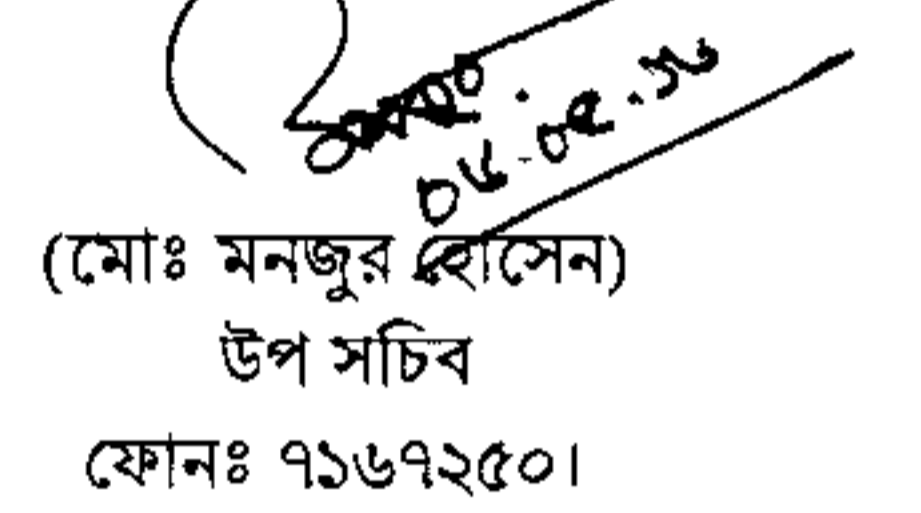 ০৮.০৫.১৬
(মোঃ মনজুর হোসেন)
উপ সচিব
ফোনঃ ৭১৬৭২৫০।